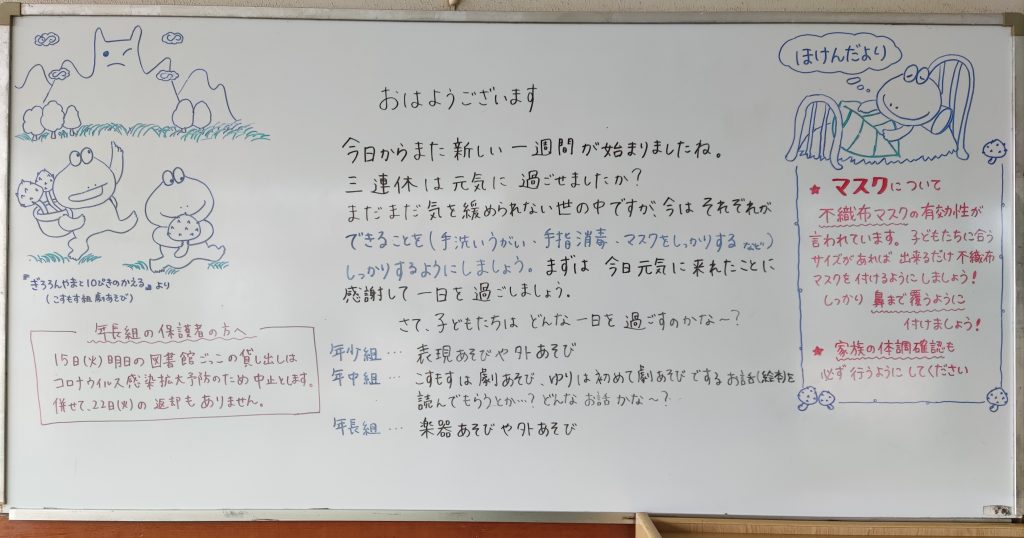 おはようございます
今日からまた新しい一週間が始まりましたね。
三連休は元気に過ごせましたか？
まだまだ気を緩められない世の中ですが、今はそれぞれが
できることを(手洗いうがい・手指消毒・マスクをしっかりするなど)
しっかりするようにしましょう。まずは今日元気に来れたことに
感謝して一日を過ごしましょう。
さて、子どもたちはどんな一日を過ごすのかな〜？
年少組…表現あそびや外あそび
年中組…こすもすは劇あそび、ゆりは初めて劇あそびでするお話(絵本)を
読んでもらうとか…？どんなお話かな〜？
年長組…楽器あそびや外あそび
『ぎろろんやまと10ぴきのかえる』より
(こすもす組劇あそび)
年長組の保護者の方へ
15日(火)明日の図書館ごっこの貸し出しは
コロナウイルス感染拡大予防のため中止とします。
併せて、22日(火)の返却もありません。
ほけんだより
★マスクについて
不織布マスクの有効性が
言われています。子どもたちに合う
サイズがあれば出来るだけ不織布
マスクを付けるようにしましょう！
しっかり鼻まで覆うように
付けましょう！
★家族の体調確認も
必ず行うようにしてください